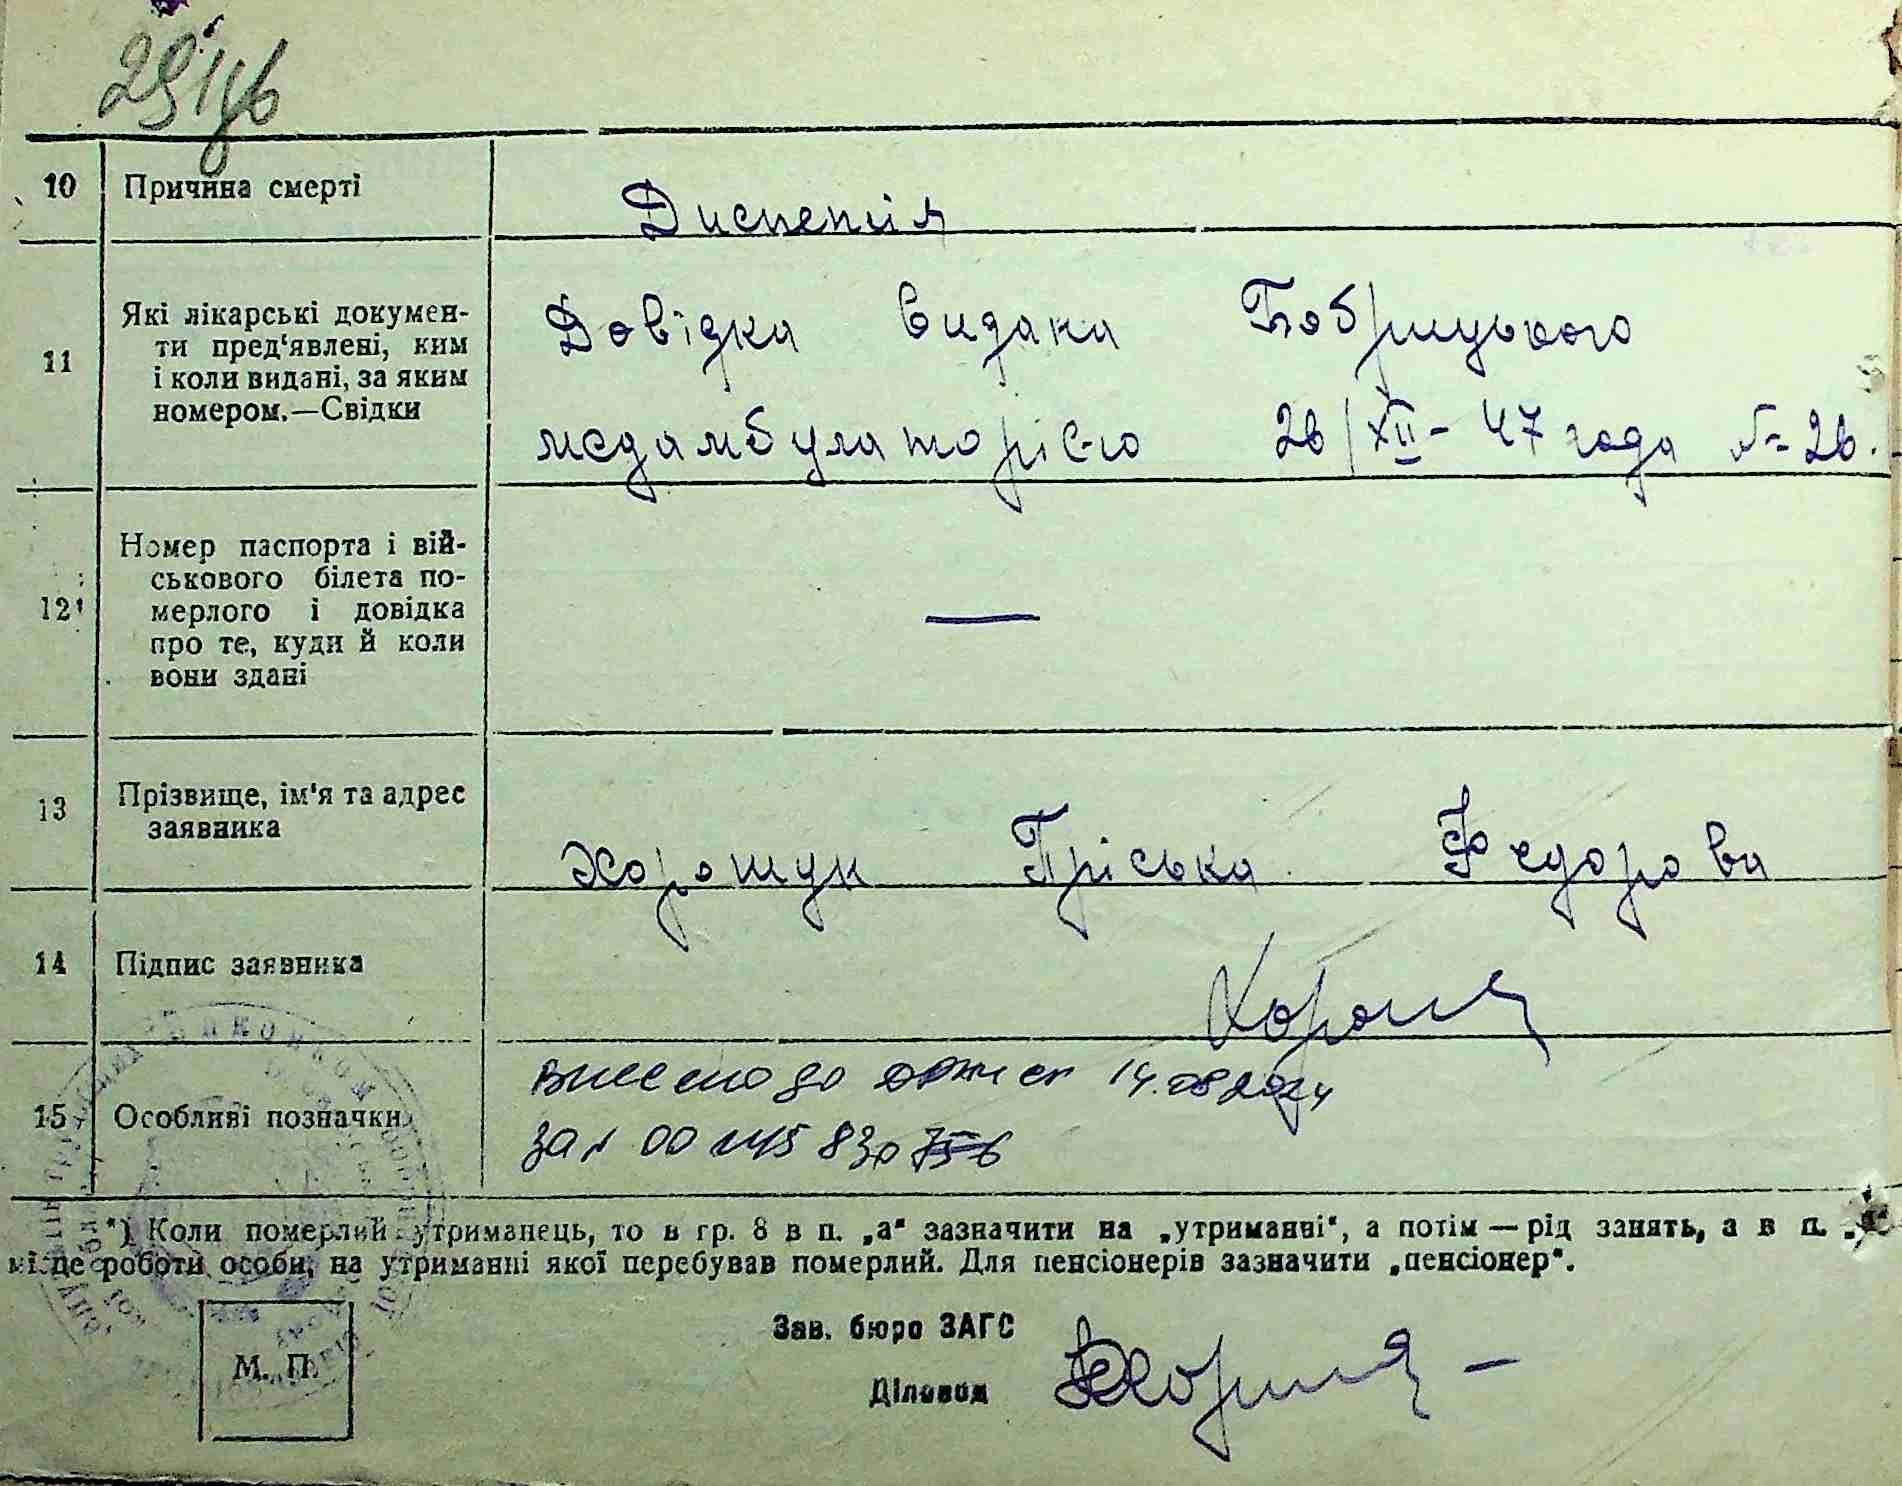 10 Причина смерті Диспепсія
11 Які лікарські докумен-
ти пред'явлені, ким
і коли видані, за яким
номером.—Свідки
Довідка видана Бобрицького
медамбулаторією 26/XII-47 года №=26.
12 Номер паспорта і вій-
ськового білета по-
мерлого і довідка
про те, куди й коли
вони здані
—
13 Прізвище, ім'я та адрес
заявника
Хорошук Пріська Федорова
14 Підпис заявника
15 Особливі позначки
внесено до 14.08.2024
за № 00
*) Коли померлий утриманець, то в гр. 8 в п. „а“ зазначити на „утриманні“, а потім — рід занять, а в п.
місце роботи особи, на утриманні якої перебував померлий. Для пенсіонерів зазначити „пенсіонер“.
М. П.
Зав. бюро ЗАГС
Діловод